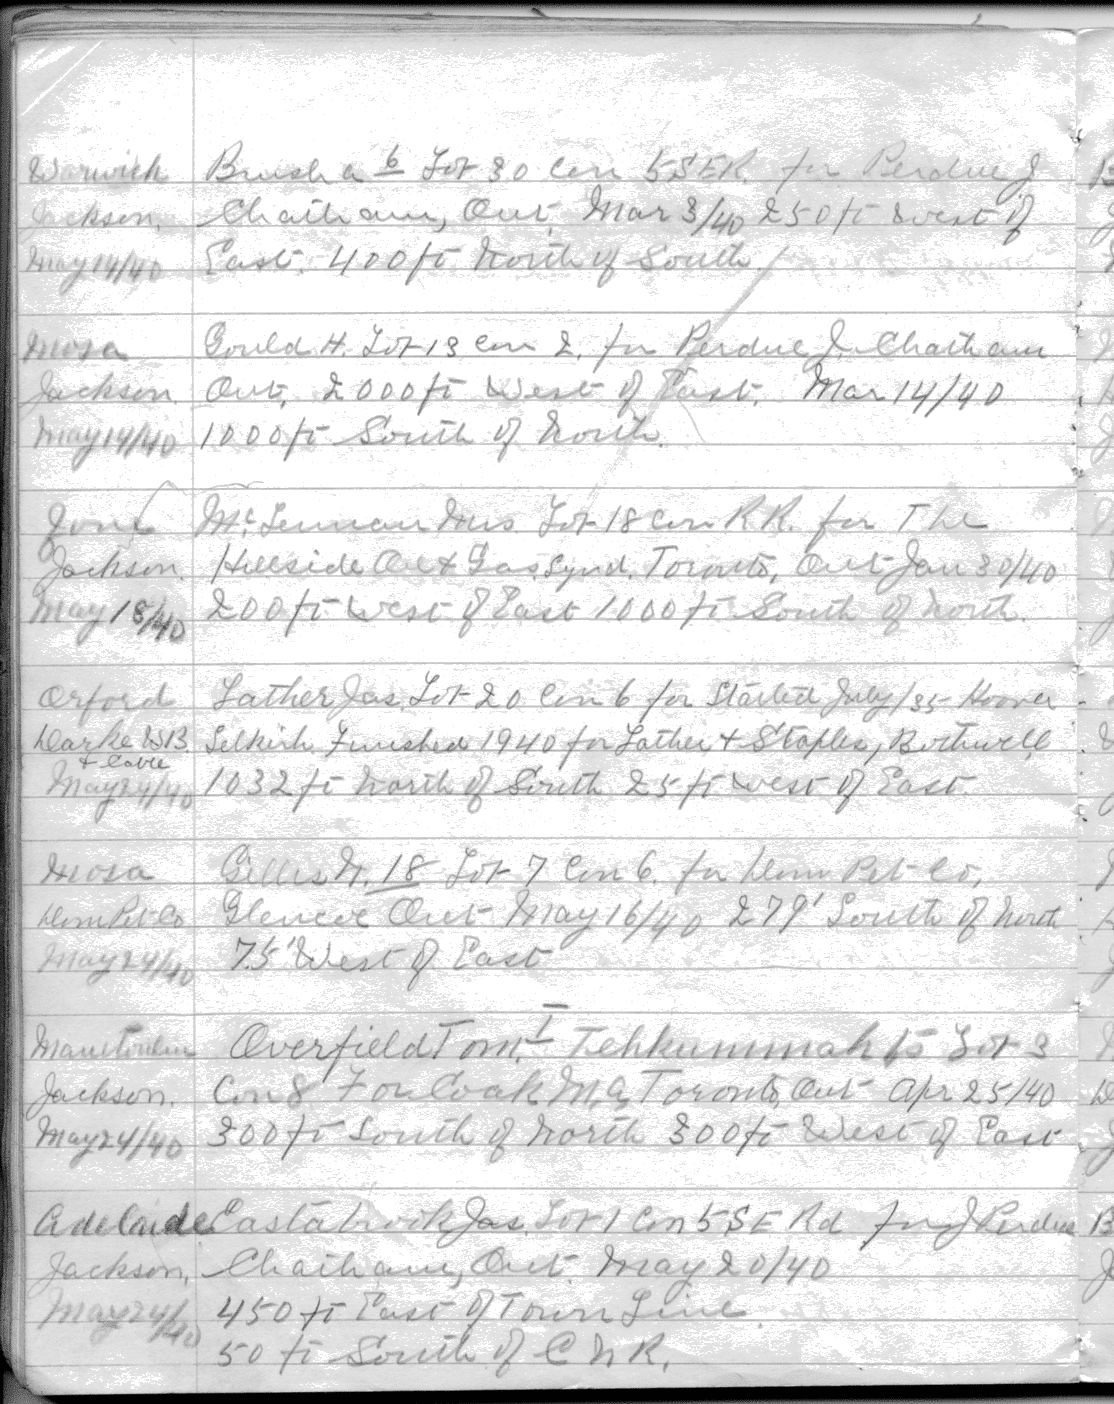 Warwick Brush a 6 Lot 30 Con 5 SER. for Perdue J
Jackson. Chatham, Ont. Mar 3/40 250 ft West of
May 14/40 East. 400 ft North of South
Mosa Gould H. Lot 13 Con 2. for Perdue J. Chatham
Jackson. Ont. 2000 ft West of East. Mar 14/40
May 14/40 1000 ft South of North.
McLennan Lot 18 Con R R. for The
Jackson. Hillside Oil & Gas. Synd. Toronto, Ont Jan 30/40
May 18/40 200 ft West of East 1000 ft South of North.
Orford Lather Jas. Lot 20 Con 6 for Started July/35 Hoover
Selkirk Finished 1940 for Lather & Staples, Bothwell
May 24/40 1032 ft North of South 25 ft West of East.
Mosa Gillis N. 18 Lot 7 Con 6. for Dom Pet Co,
Dom Pet Co Glencoe Ont May 16/40 279' South of North
May 24/40 75' West of East
Manitoulin Overfield Tom. I Tehkummah Lot 3
Jackson. Con 8 For Coak M. Toronto, Ont Apr 25/40
May 24/40 300 ft South of North 300 ft West of East
Adelaide Eastabrook Jas. Lot 1 Con 5 SE Rd for J Perdue
Jackson, Chatham, Ont. May 20/40
May 24/40 450 ft East of Town Line
50 ft South of C N R.